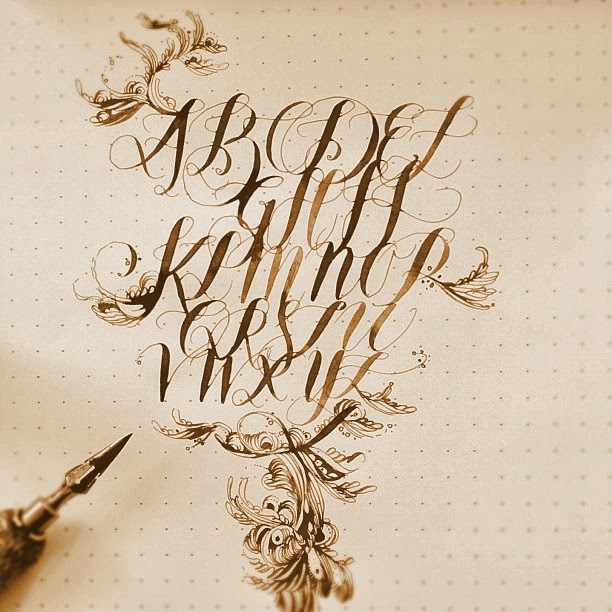 ABCDEF
GHIJ
KLMNOP
QRSTU
VWXYZ